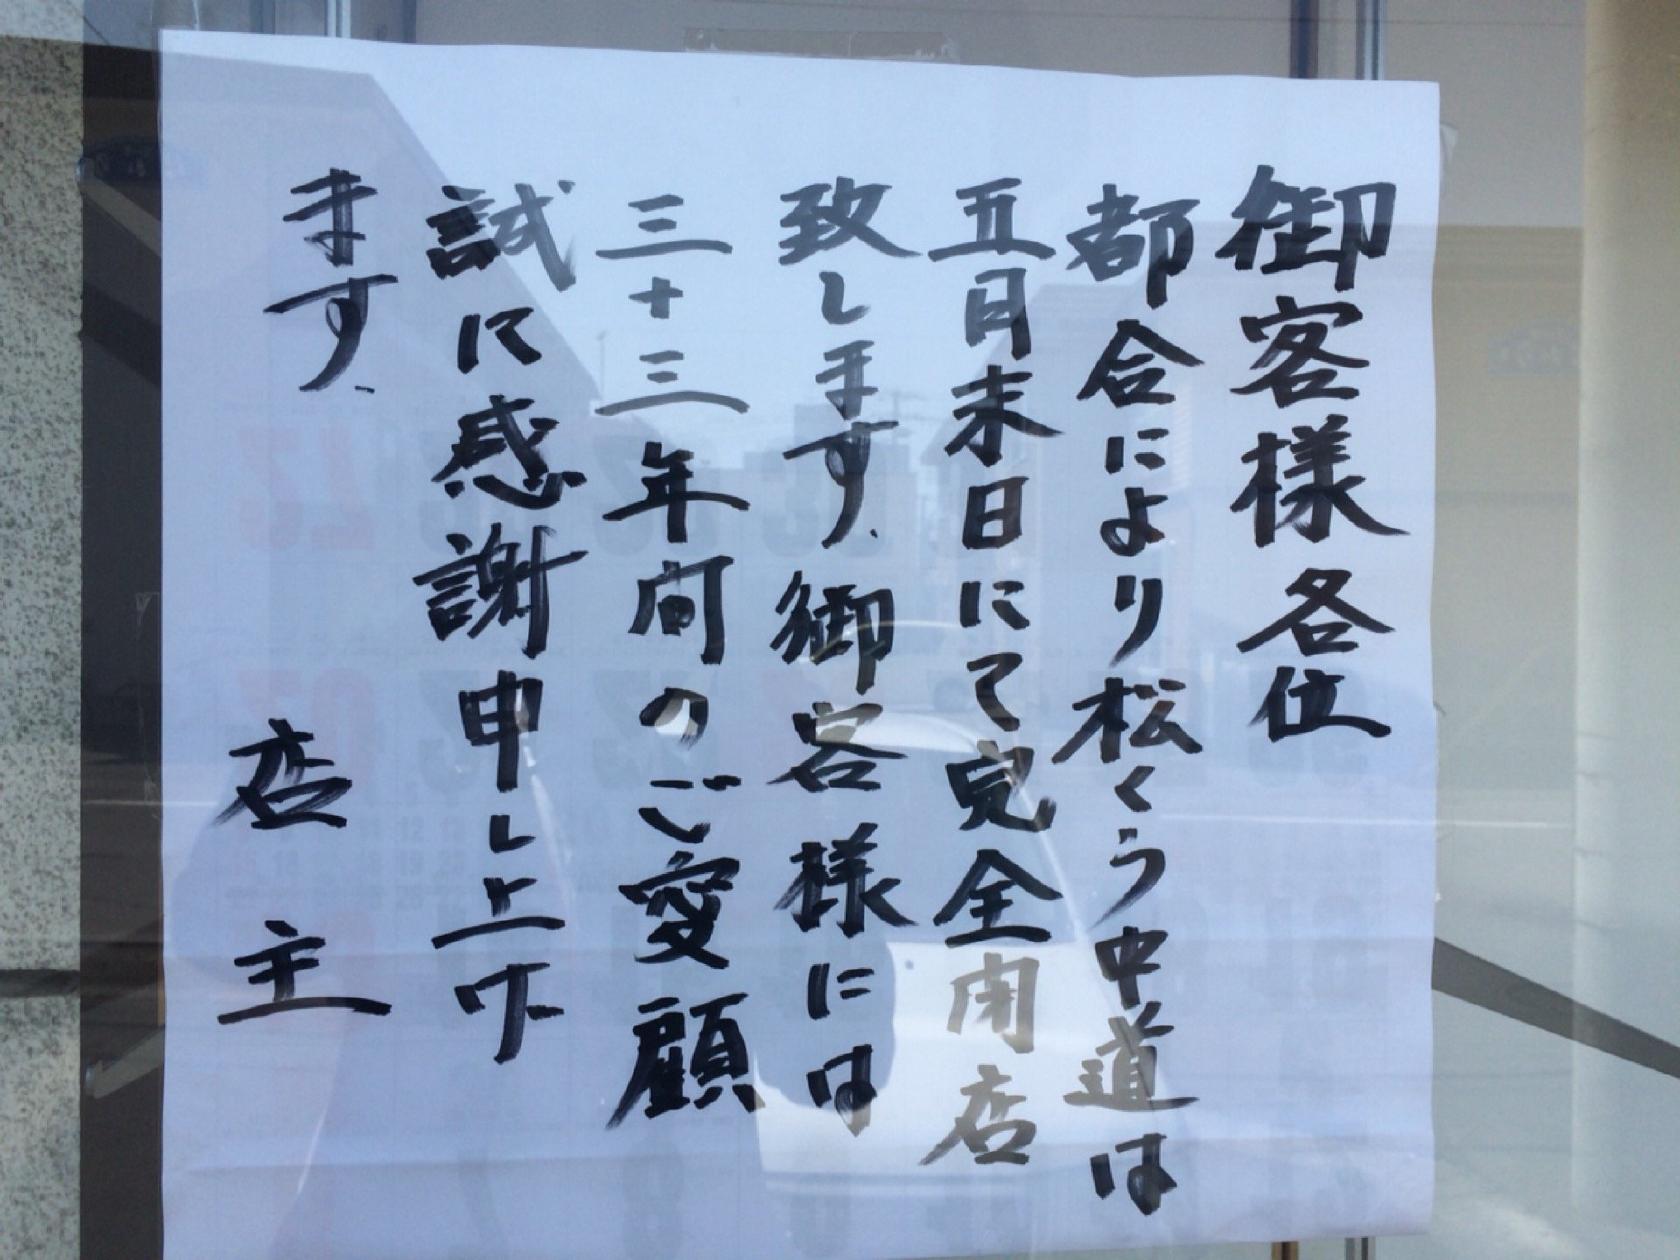 御客様各位
都合により松くう中道は
五日末日にて完全閉店
致します。御客様には
三十三年间のご愛顧
試に感謝申し上げ
ます。
店主